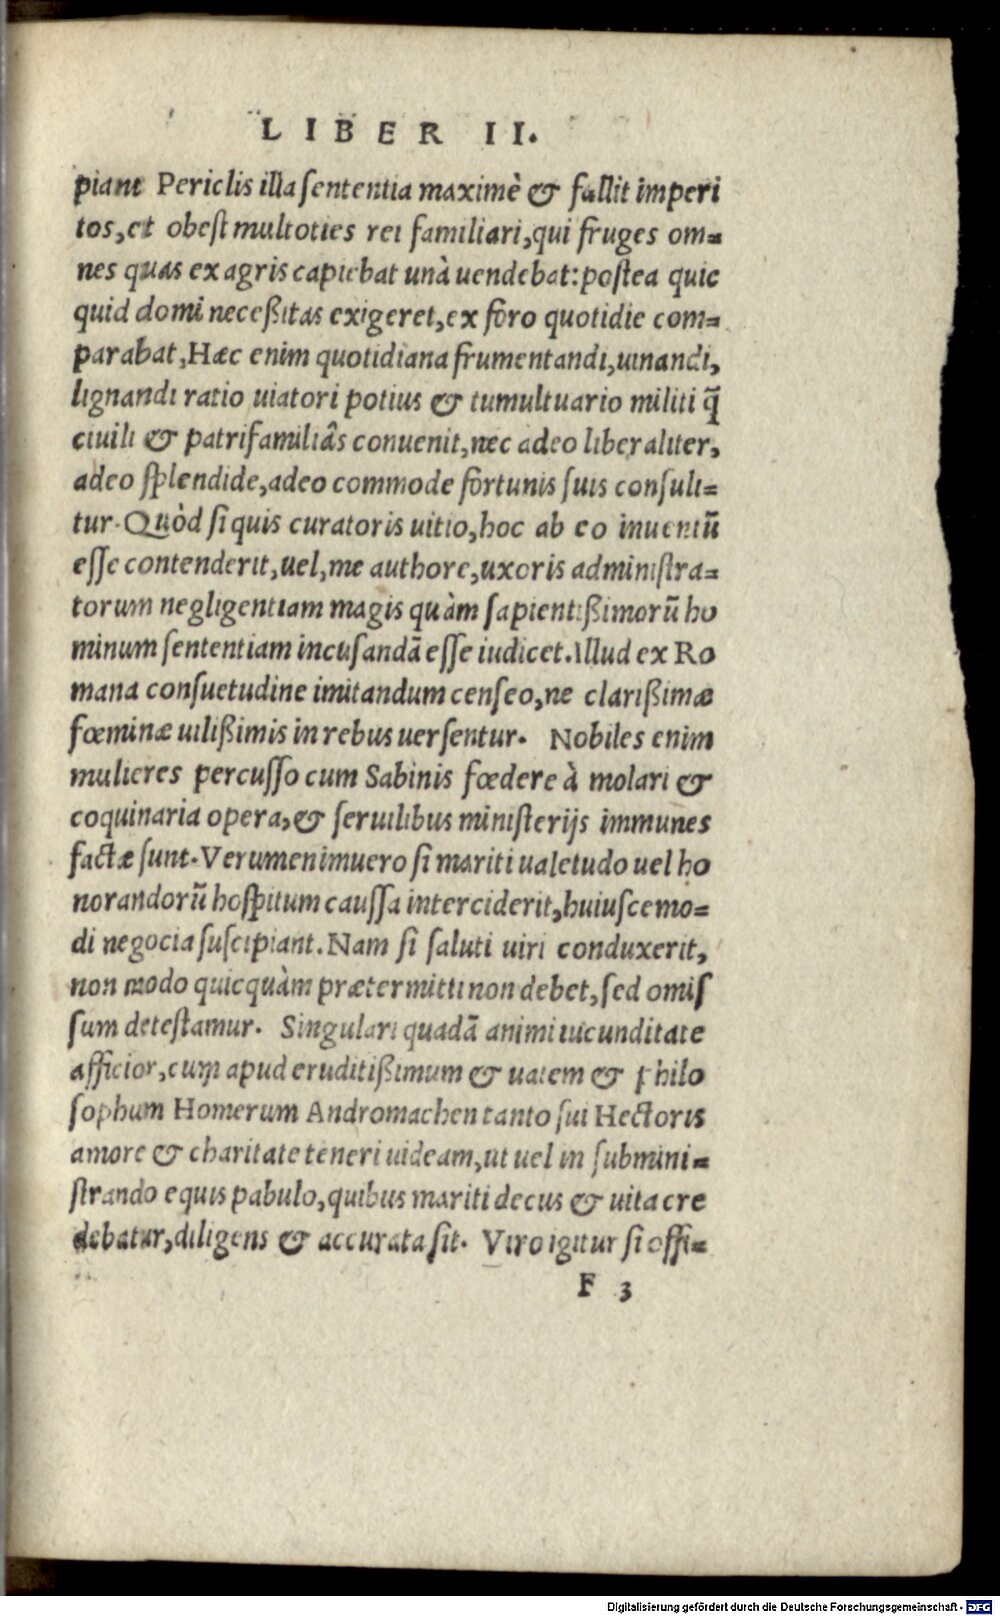 LIBER II.
piant Periclis illa sententia maximè & fallit imperi
tos, et obest multoties rei familiari, qui fruges om=
nes quas ex agris capiebat unà uendebat: postea quic
quid domi neceßitas exigeret, ex foro quotidie com=
parabat, Hæc enim quotidiana frumentandi, uinandi,
lignandi ratio uiatori potius & tumultuario militi q̃
ciuili & patrifamiliâs conuenit, nec adeo liberaliter,
adeo splendide, adeo commode fortunis suis consuli=
tur. Quòd si quis curatoris uitio, hoc ab eo inuentũ
esse contenderit, uel, me authore, uxoris administra=
torum negligentiam magis quàm sapientißimorũ ho
minum sententiam incusandã esse iudicet. Illud ex Ro
mana consuetudine imitandum censeo, ne clarißimæ
fœminæ uilißimis in rebus uersentur. Nobiles enim
mulieres percusso cum Sabinis fœdere à molari &
coquinaria opera, & seruilibus ministerijs immunes
factæ sunt. Verumenimuero si mariti ualetudo uel ho
norandorũ hospitum caussa interciderit, huiuscemo=
di negocia suscipiant. Nam si saluti uiri conduxerit,
non modo quicquàm prætermitti non debet, sed omis
sum detestamur. Singulari quadã animi iucunditate
afficior, cum apud eruditißimum & uatem & philo
sophum Homerum Andromachen tanto sui Hectoris
amore & charitate teneri uideam, ut uel in submini=
strando equis pabulo, quibus mariti decus & uita cre
debatur, diligens & accurata sit. Viro igitur si offi=
F 3
Digitalisierung gefördert durch die Deutsche Forschungsgemeinschaft - DFG